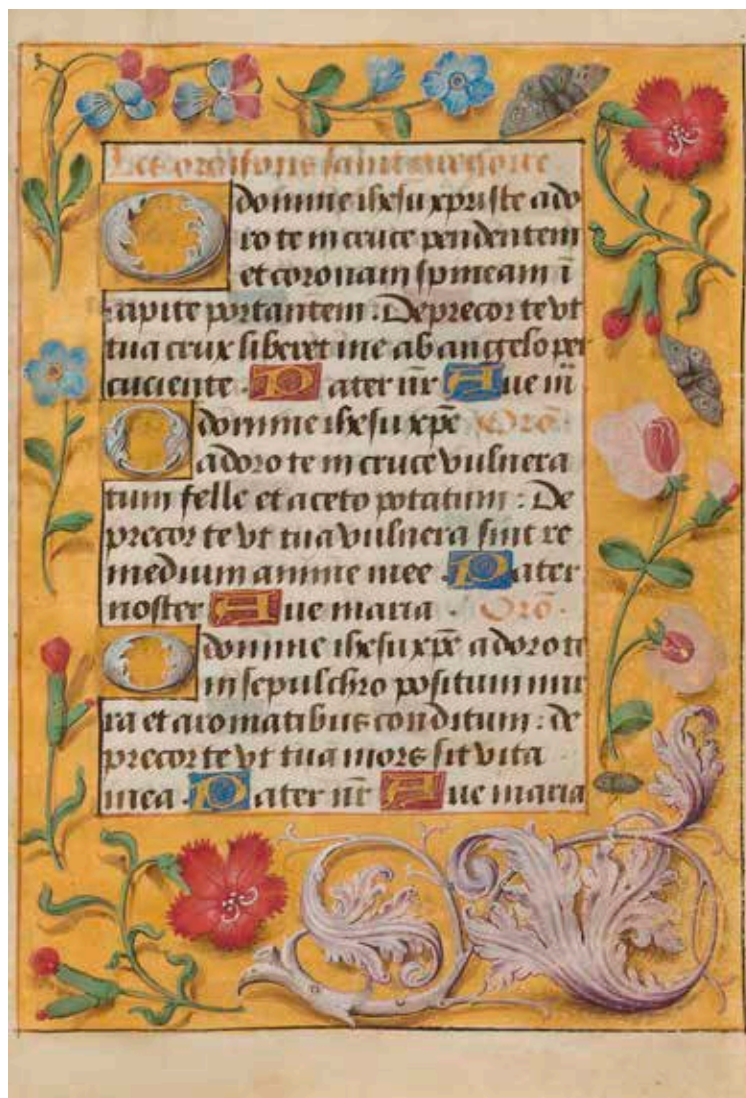 Les orãisons saint gregoire
O domine ihesu xpriste ado
ro te in cruce pendentem
et coronam spineam ī
capite portantem. Deprecor te vt
tua crux liberet me ab angelo per
cuciente. Pater nr̄ Aue m̄
O domine ihesu xpē Orō
adoro te in cruce vulnera
tum felle et aceto potatum: De
precor te vt tua vulnera sint re
medium anime mee. Pater
noster Aue maria. Orō.
O domine ihesu xpē adoro te
in sepulchro positum mir
ra et aromatibus conditum: de
precor te vt tua mors sit vita
mea. Pater nr̄ Aue maria